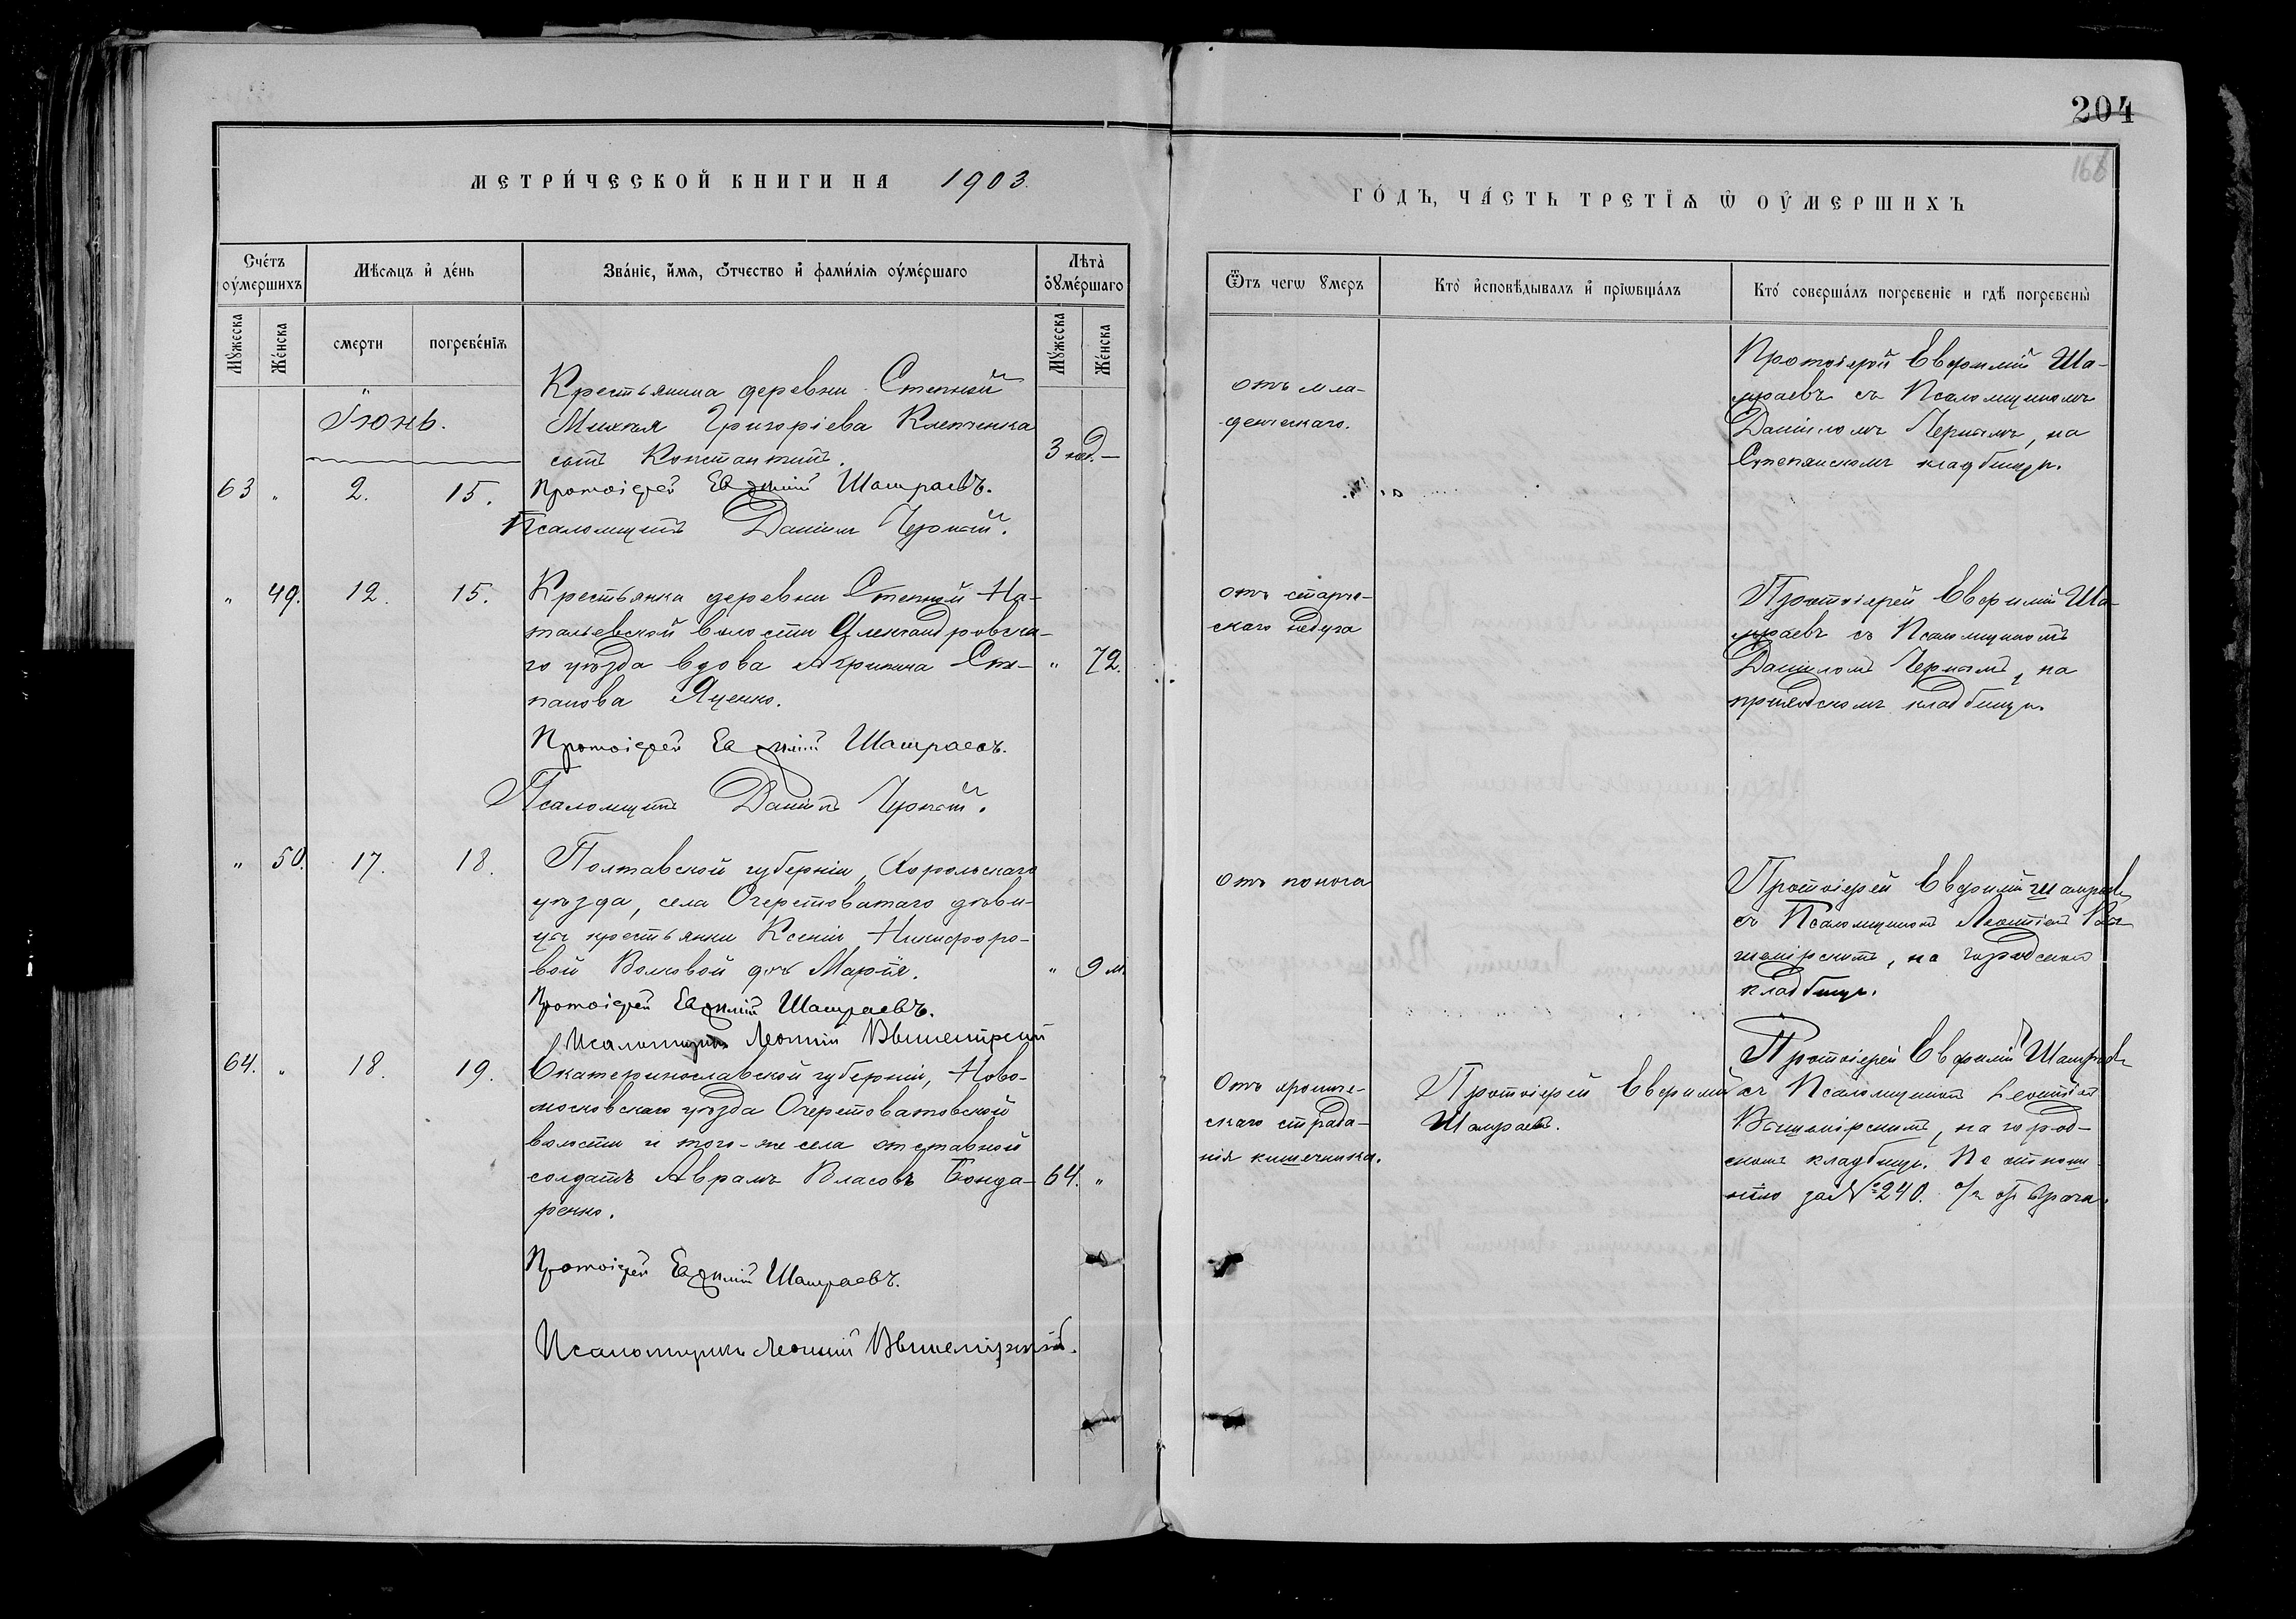 204
168
МЕТРИ́ЧЕСКОЙ КНИГИ НА 1903.
ГО́ДЪ, ЧА́СТЬ ТРЕТІѦ Ѡ ОУ҆МЕРШИХЪ
Сче́тъ оу҆́мершихъ
Мѣсѧцъ и҆ де́нь
Зва́нїе, и҆́мѧ, ѻ҆́тчество и҆ фами́лїѧ оу҆ме́ршаго
Лѣта̀ оу҆ме́ршаго
Ѿ чегѡ̀ ᲂу҆меръ
Кто̀ и҆сповѣ́дывалъ и҆ прїѡбща́лъ
Кто́ соверша́лъ погребенїе и гдѣ̀ погребены̀
Му́жеска
Же́нска
смерти
погребе́нїѧ
Му́жеска
Же́нска
Іюнь.
Крестьянина деревни Степной
Михаила Григоріева Клепченка
сынъ Константинъ.
3 нед. —
63 " 2. 15.
Протоіерей Евѳимій Шамраевъ.
Псаломщикъ Даніилъ Черный.
отъ мла-
денческаго.
Протоіерей Евфимій Ша-
мраевъ съ Псаломщикомъ
Даніиломъ Чернымъ, на
Степянскомъ кладбищѣ.
" 49. 12. 15.
Крестьянка деревни Степной На-
тальевской волости Александровска-
го уѣзда вдова Агрипина Сте- " 72.
панова Яценко.
Протоіерей Евѳимій Шамраевъ.
Псаломщикъ Даніилъ Черный.
отъ старче-
скаго недуга
Протоіерей Евфимій Ша-
мраевъ съ Псаломщикомъ
Даніиломъ Чернымъ, на
приходскомъ кладбищѣ.
" 50. 17. 18.
Полтавской губерніи, Хорольскаго
уѣзда, села Очеретоватаго дѣви-
цы крестьянки Ксеніи Никифоро-
вой Волковой дочь Марія. " 9 м.
Протоіерей Евѳимій Шамраевъ.
Псаломщикъ Леонтій Вышемірскій
отъ поноса
Протоіерей Евфимій Шамраевъ
съ Псаломщикомъ Леонтіемъ Вы-
шемірскимъ, на городскомъ
кладбищѣ.
64. " 18. 19.
Екатеринославской губерніи, Ново-
московскаго уѣзда Очеретоватовской
волости и того-же села отставной
солдатъ Аврамъ Власовъ Бонда- 64. "
ренко.
Протоіерей Евѳимій Шамраевъ.
Псаломщикъ Леонтій Вышемірскій.
Отъ хрониче-
скаго страда-
нія кишечника.
Протоіерей Евфимій
Шамраевъ.
Протоіерей Евфимій Шамраевъ
съ Псаломщикомъ Леонтіемъ
Вышемірскимъ, на город-
скомъ кладбищѣ. По отноше-
нію за №240. отъ врача.